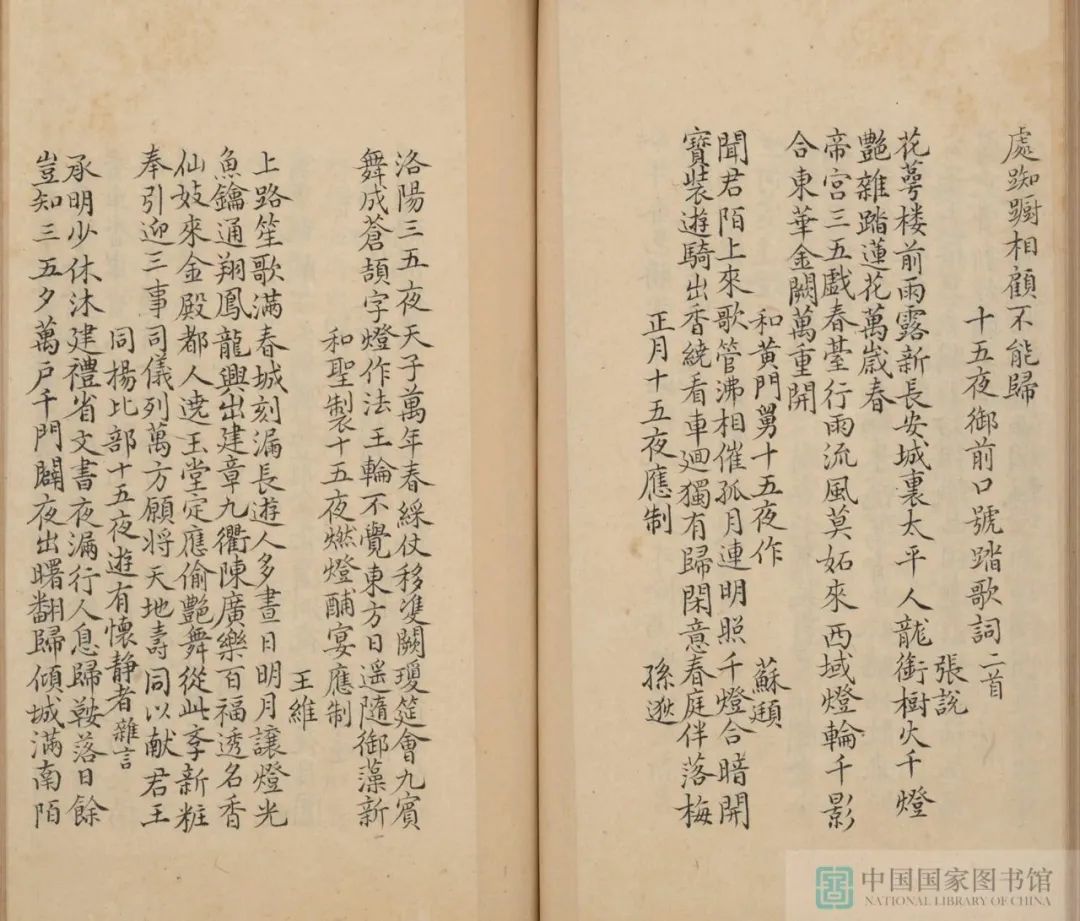 處踟蹰相顧不能歸
十五夜御前口號踏歌詞二首
張說
花萼楼前雨露新長安城裏太平人龍銜樹火千燈
艷雜踏蓮花萬歲春
帝宮三五戲春臺行雨流風莫妬來西域燈輪千影
合東華金闕萬重開
和黃門舅十五夜作
蘇頲
聞君陌上來歌管沸相催孤月連明照千燈合暗開
寶裝遊騎出香繞看車廻獨有歸閑意春庭伴落梅
正月十五夜應制
孫逖
洛陽三五夜天子萬年春綵仗移雙闕瓊筵會九賓
舞成蒼頡字燈作法王輪不覺東方日遥隨御藻新
和聖製十五夜燃燈酺宴應制
王維
上路笙歌滿春城刻漏長遊人多晝日明月讓燈光
魚鑰通翔鳳龍輿出建章九衢陳廣樂百福透名香
仙妓來金殿都人遶玉堂定應偷艷舞從此學新粧
奉引迎三事司儀列萬方願将天地壽同以献君王
同楊比部十五夜遊有懷静者雜言
承明少休沐建禮省文書夜漏行人息歸鞍落日餘
豈知三五夕萬戸千門闢夜出曙翻歸傾城滿南陌
中国国家图书馆
NATIONAL LIBRARY OF CHINA